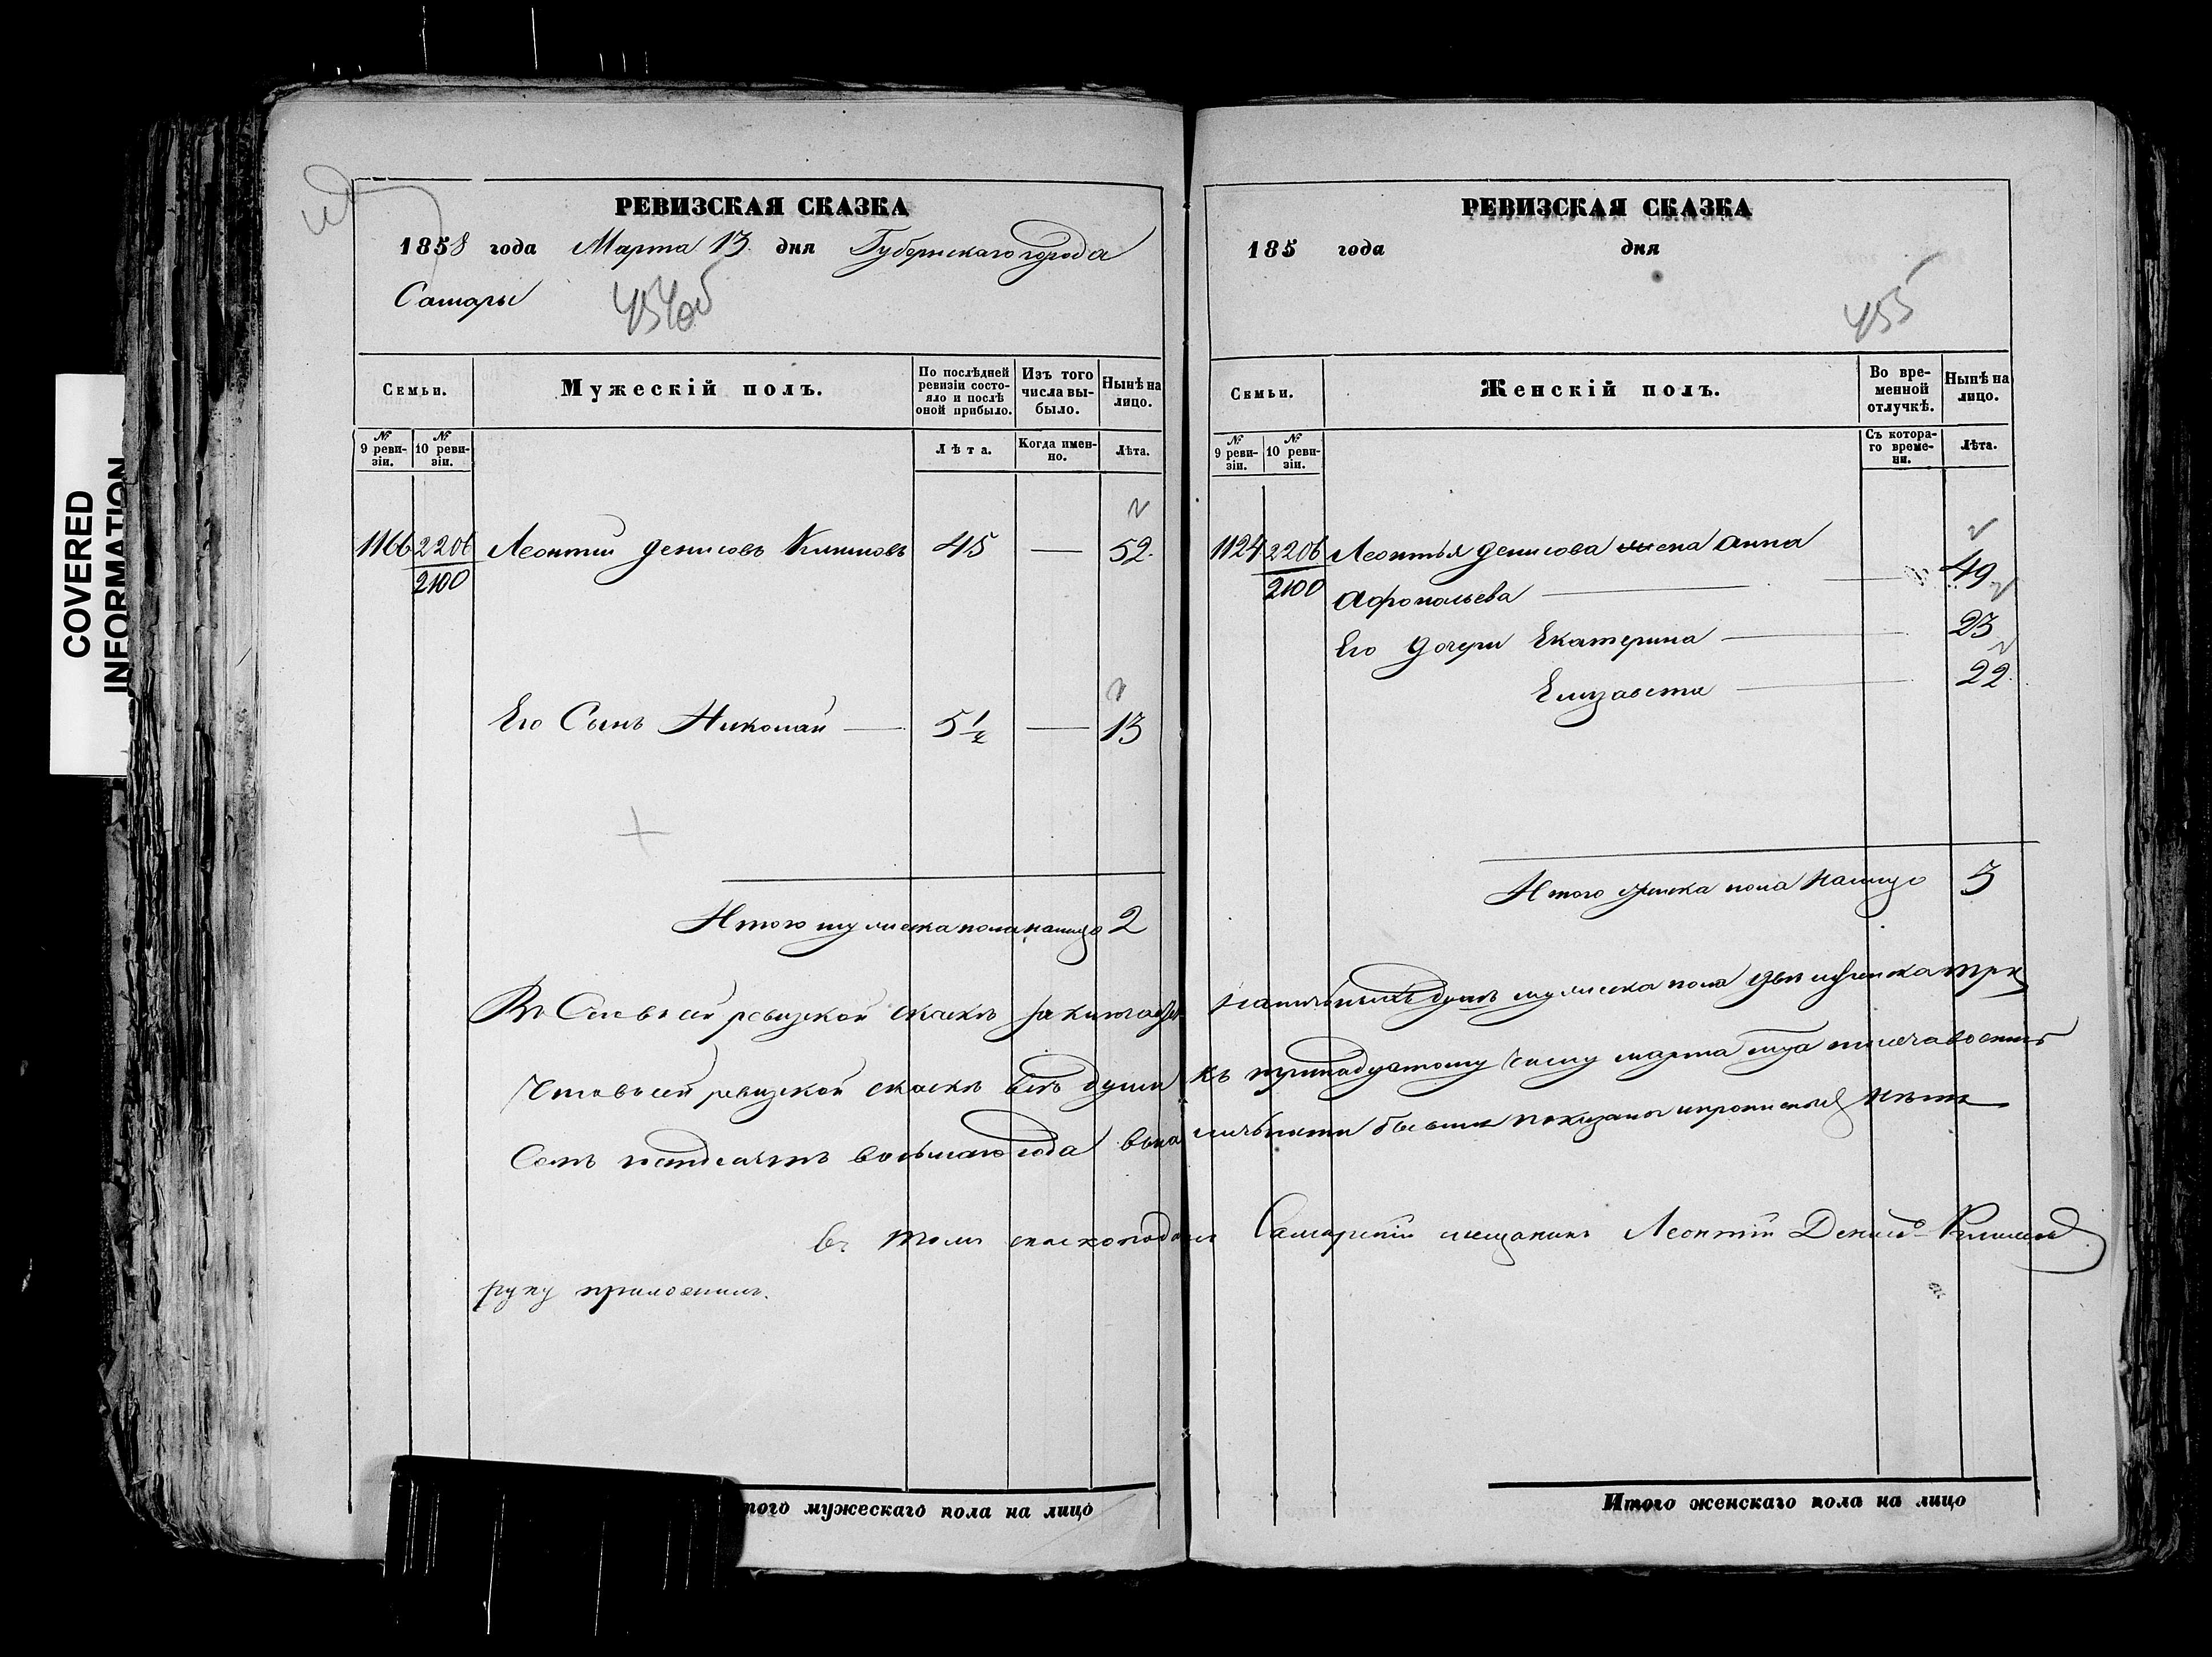 COVERED
INFORMATION
РЕВИЗСКАЯ СКАЗКА
1858 года Марта 13 дня Губернскаго города
Самары
454об
Семьи.
Мужескій полъ.
По послѣдней ревизіи состояло и послѣ оной прибыло.
Изъ того числа выбыло.
Нынѣ на лицо.
№ 9 ревизіи.
№ 10 ревизіи.
Лѣта.
Когда именно.
Лѣта.
1166 2206 Леонтій Денисовъ Климовъ 45 — 52.
2100
Его Сынъ Николай — 5 1/2 — 13
Итого мужеска пола налицо 2
РЕВИЗСКАЯ СКАЗКА
185 года дня
455
Семьи.
Женскій полъ.
Во временной отлучкѣ.
Нынѣ на лицо.
№ 9 ревизіи.
№ 10 ревизіи.
Съ котораго времени.
Лѣта.
1124 2206 Леонтья Денисова жена Анна
2100 Афонасьева — 49
Его дочери Екатерина — 23
Елизавета — 22
Итого женска пола налицо 3
Въ Сей ревизкой скаскѣ наличныхъ душъ мужеска пола двѣ женска три
Что въ сей ревизкой скаскѣ всѣ души къ тринадцатому числу марта тысяча восемь
Сотъ пятдесятъ восьмаго года въ наличности бывшія показаны и прописных нѣтъ
въ томъ Самарский мещанинъ Леонтій Денисо Климовъ
руку приложилъ.
Итого мужескаго пола на лицо
Итого женскаго пола на лицо